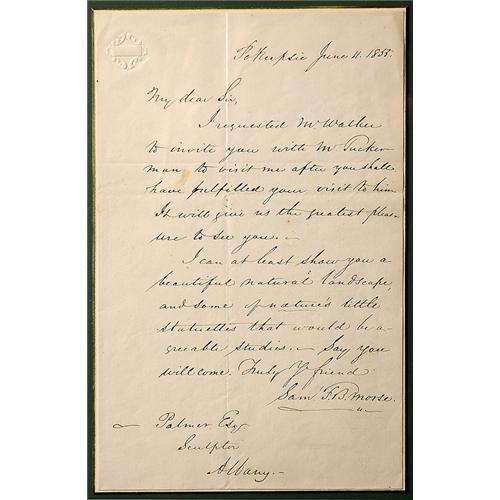 Po'Keepsie June 11. 1855.
My dear Sir,
I requested Mr Walker
to invite you with Mr Tucker
man to visit me after you shall
have fulfilled your visit to him
It will give us the greatest pleas-
ure to see you. -
I can at least show you a
beautiful natural landscape,
and some of nature's little
statuettes that would be a-
greeable studies. - Say you
will come. Truly Yr friend
Saml F. B. Morse.
Palmer Esq
Sculptor
Albany. -